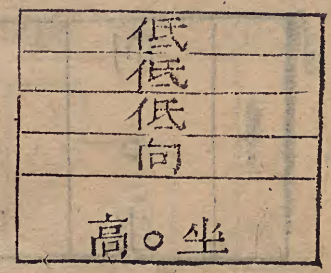 低
低
低
向
高○坐